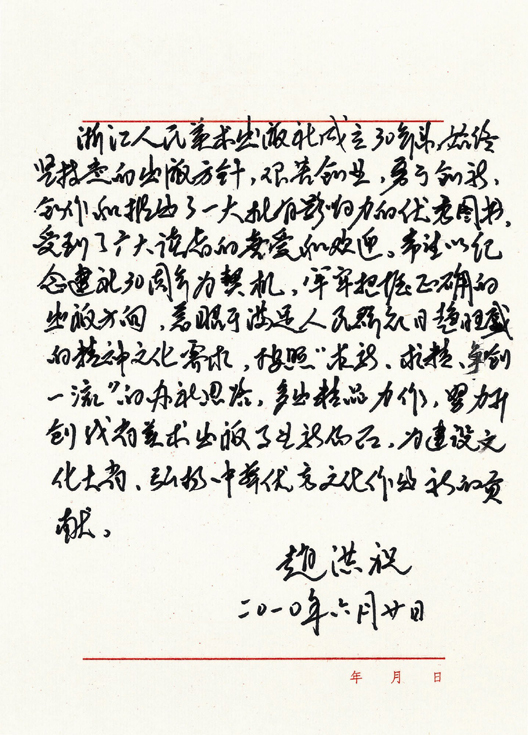 浙江人民美术出版社成立30年来，始终
坚持正确的出版方针，艰苦创业，勇于创新，
创作和推出了一大批有影响力的优秀图书，
受到了广大读者的喜爱和欢迎。希望以纪
念建社30周年为契机，牢牢把握正确的
出版方向，着眼于满足人民群众日趋旺盛
的精神文化需求，按照“求新、求精、争创
一流”的办社思路，多出精品力作，努力开
创我省美术出版事业新局面，为建设文
化大省、弘扬中华优秀文化作出新的贡
献。
赵洪祝
二〇一〇年六月廿日
年 月 日